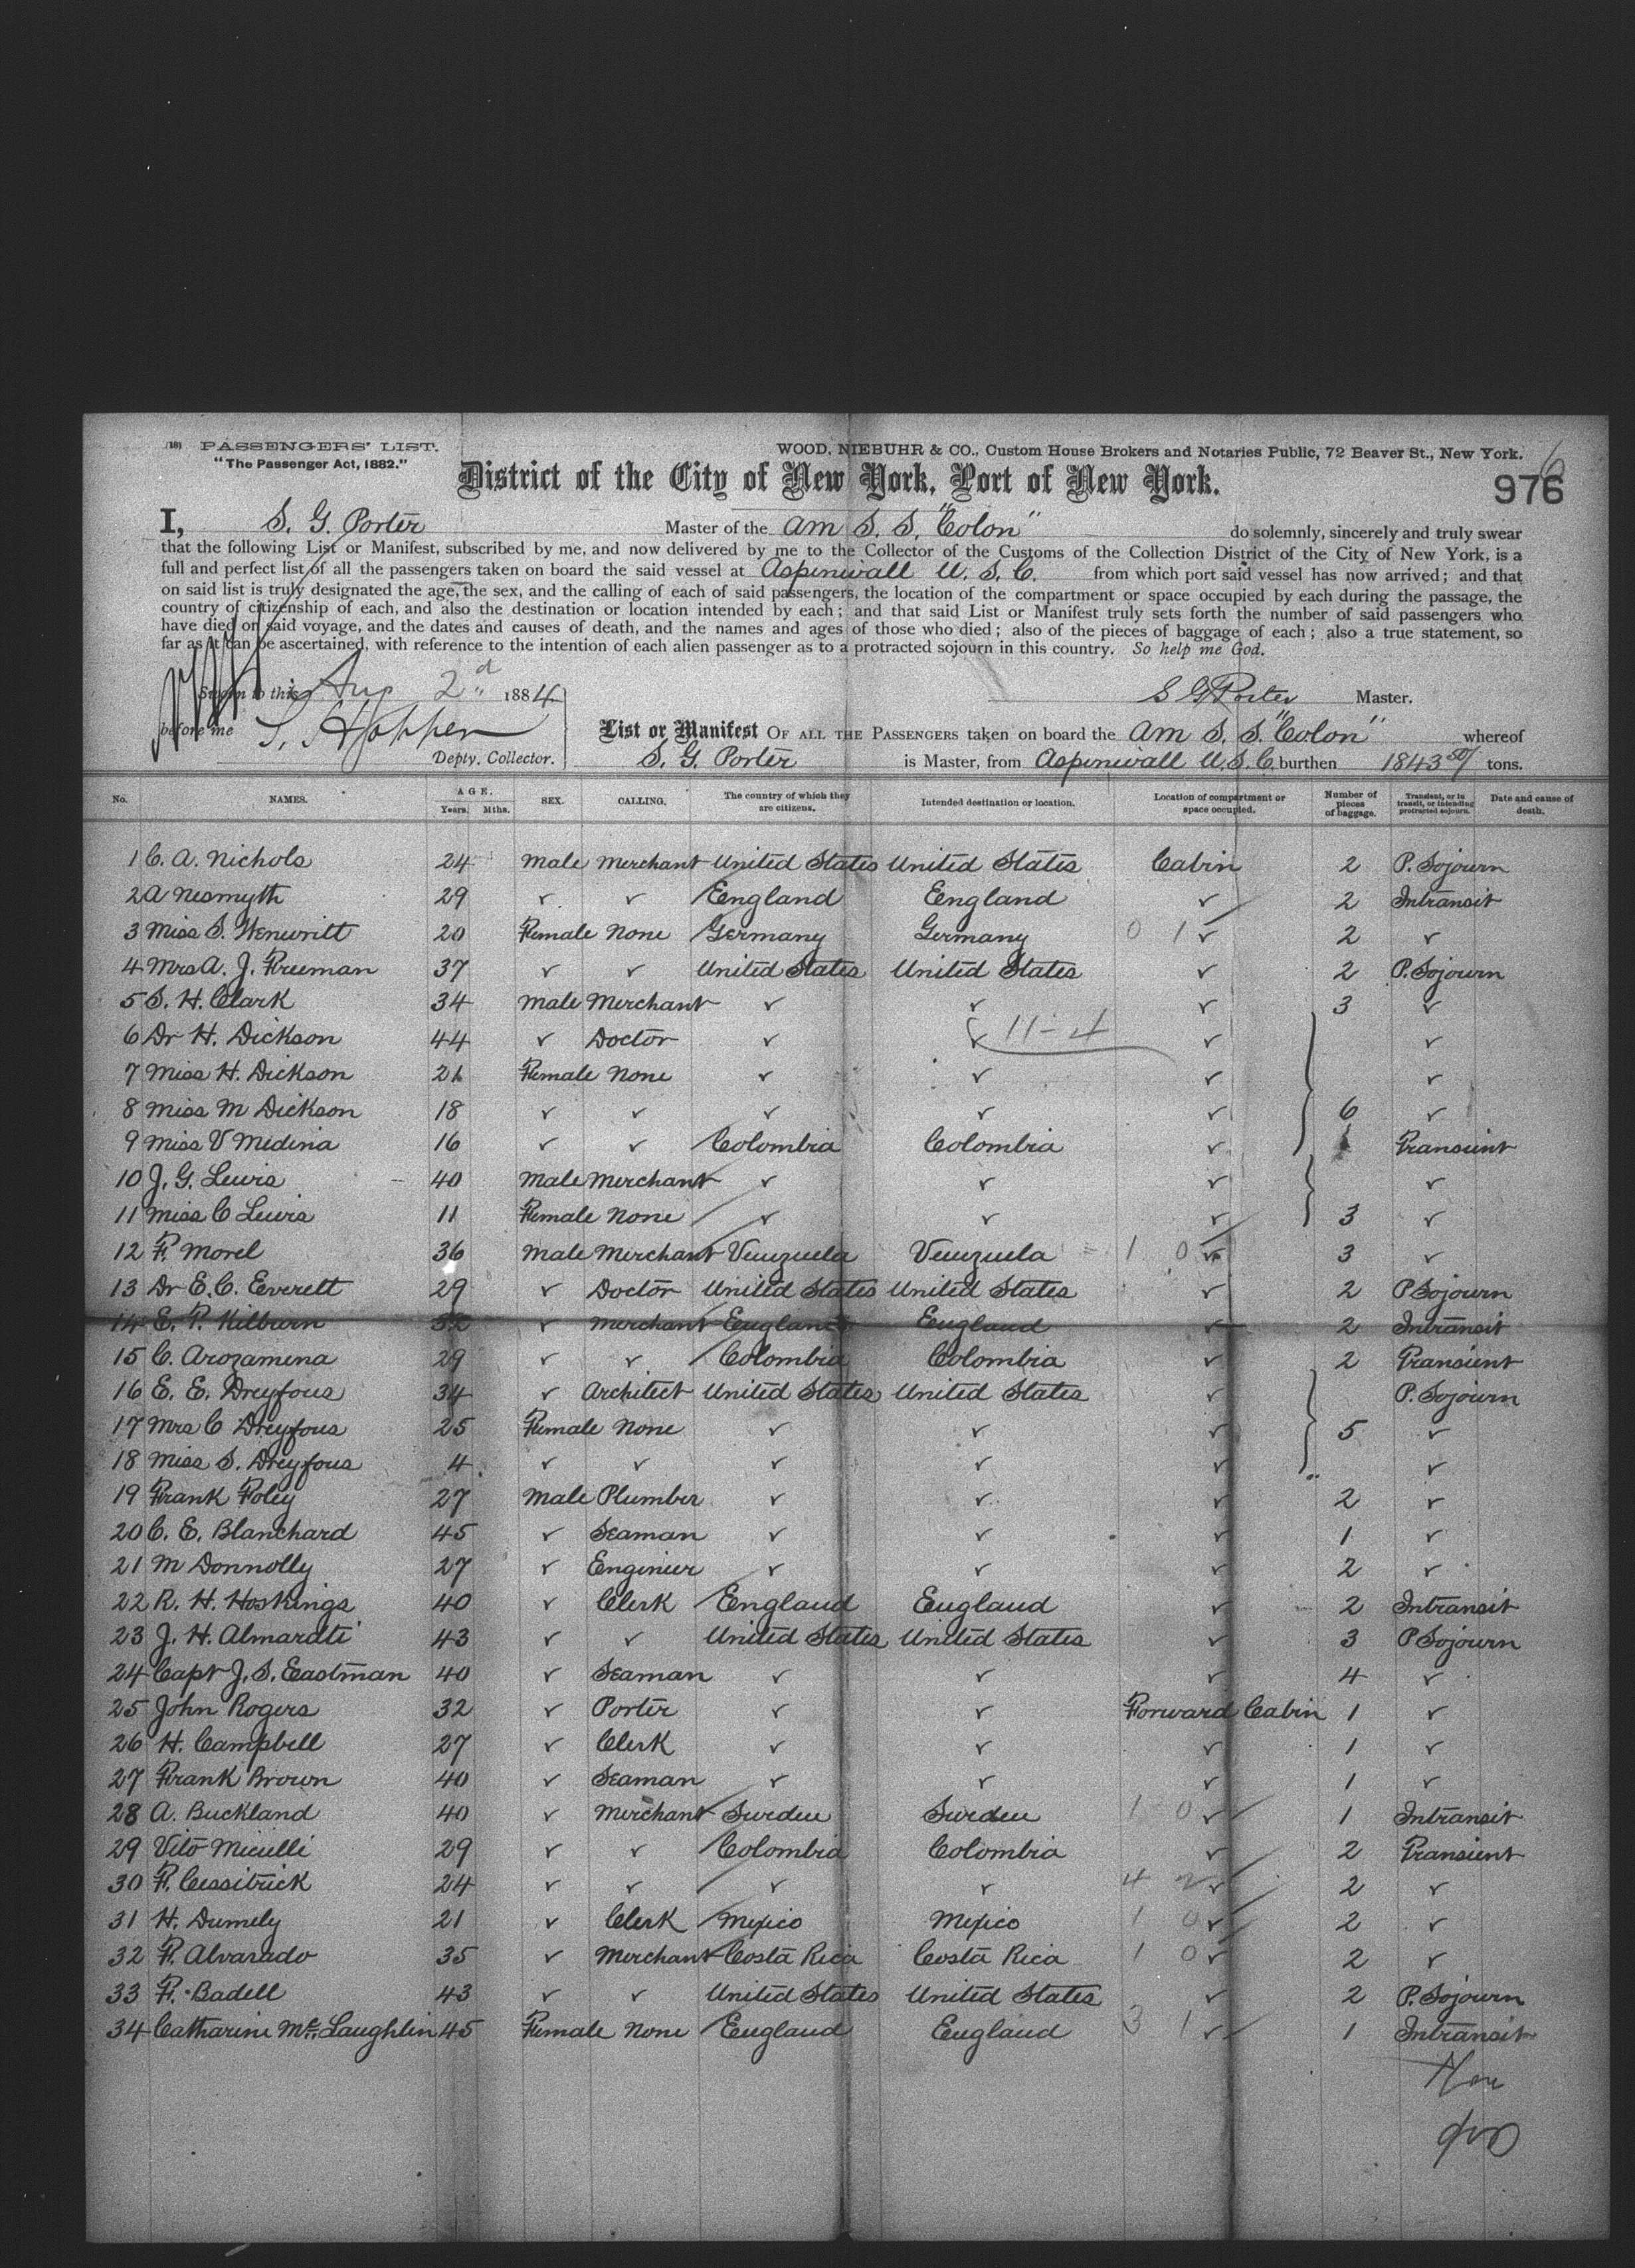 (18) PASSENGERS' LIST.
"The Passenger Act, 1882."
WOOD, NIEBUHR & CO., Custom House Brokers and Notaries Public, 72 Beaver St., New York.
6
District of the City of New York, Port of New York.
976
I, S. G. Porter Master of the Am S. S. "Colon" do solemnly, sincerely and truly swear
that the following List or Manifest, subscribed by me, and now delivered by me to the Collector of the Customs of the Collection District of the City of New York, is a
full and perfect list of all the passengers taken on board the said vessel at Aspinwall U. S. C. from which port said vessel has now arrived; and that
on said list is truly designated the age, the sex, and the calling of each of said passengers, the location of the compartment or space occupied by each during the passage, the
country of citizenship of each, and also the destination or location intended by each; and that said List or Manifest truly sets forth the number of said passengers who
have died on said voyage, and the dates and causes of death, and the names and ages of those who died; also of the pieces of baggage of each; also a true statement, so
far as it can be ascertained, with reference to the intention of each alien passenger as to a protracted sojourn in this country. So help me God.
Sworn to this Aug 2d 1884 S G Porter Master.
before me S. Hopper
Depty. Collector.
List or Manifest OF ALL THE PASSENGERS taken on board the Am S. S. "Colon" whereof
S. G. Porter is Master, from Aspinwall U. S. C. burthen 1843 50/ tons.
No. NAMES. AGE. Years. Mths. SEX. CALLING. The country of which they are citizens. Intended destination or location. Location of compartment or space occupied. Number of pieces of baggage. Transient, or in transit, or intending protracted sojourn. Date and cause of death.
1 C. A. Nichols 24 Male Merchant United States United States Cabin 2 P. Sojourn
2 A Nesmyth 29 ✓ ✓ England England ✓ 2 Intransit
3 Miss S. Wenwritt 20 Female None Germany Germany 0 1 ✓ 2 ✓
4 Mrs A. J. Freeman 37 ✓ ✓ United States United States ✓ 2 P. Sojourn
5 S. H. Clark 34 Male Merchant ✓ ✓ ✓ 3 ✓
6 Dr H. Dickson 44 ✓ Doctor ✓ ✓ 11-4 ✓ ✓
7 Miss H. Dickson 21 Female None ✓ ✓ ✓ ✓
8 Miss M Dickson 18 ✓ ✓ ✓ ✓ ✓ 6 ✓
9 Miss V Medina 16 ✓ ✓ Colombia Colombia ✓ Transient
10 J. G. Lewis 40 Male Merchant ✓ ✓ ✓ ✓
11 Miss C Lewis 11 Female None ✓ ✓ ✓ 3 ✓
12 F. Morel 36 Male Merchant Venzuela Venzuela 1 0 ✓ 3 ✓
13 Dr E. C. Everett 29 ✓ Doctor United States United States ✓ 2 P Sojourn
14 E. P. Kilburn 32 ✓ Merchant England England ✓ 2 Intransit
15 C. Arozamena 29 ✓ ✓ Colombia Colombia ✓ 2 Transient
16 E. E. Dreyfous 34 ✓ Architect United States United States ✓ P. Sojourn
17 Mrs C Dreyfous 25 Female None ✓ ✓ ✓ 5 ✓
18 Miss S. Dreyfous 4 ✓ ✓ ✓ ✓ ✓ ✓
19 Frank Foley 27 Male Plumber ✓ ✓ ✓ 2 ✓
20 C. E. Blanchard 45 ✓ Seaman ✓ ✓ ✓ 1 ✓
21 M Donnolly 27 ✓ Enginier ✓ ✓ ✓ 2 ✓
22 R. H. Hoskings 40 ✓ Clerk England England ✓ 2 Intransit
23 J. H. Almarati 43 ✓ ✓ United States United States ✓ 3 P Sojourn
24 Capt J. S. Eastman 40 ✓ Seaman ✓ ✓ ✓ 4 ✓
25 John Rogers 32 ✓ Porter ✓ ✓ Forward Cabin 1 ✓
26 H. Campbell 27 ✓ Clerk ✓ ✓ ✓ 1 ✓
27 Frank Brown 40 ✓ Seaman ✓ ✓ ✓ 1 ✓
28 A. Buckland 40 ✓ Merchant Sweden Sweden 1 0 ✓ 1 Intransit
29 Vito Micielli 29 ✓ ✓ Colombia Colombia ✓ 2 Transient
30 F. Cessitrick 24 ✓ ✓ ✓ ✓ 4 2 ✓ 2 ✓
31 H. Dumely 21 ✓ Clerk Mexico Mexico 1 0 ✓ 2 ✓
32 F. Alvarado 35 ✓ Merchant Costa Rica Costa Rica 1 0 ✓ 2 ✓
33 F. Badell 43 ✓ ✓ United States United States ✓ 2 P. Sojourn
34 Catharine McLaughlin 45 Female None England England 3 1 ✓ 1 Intransit